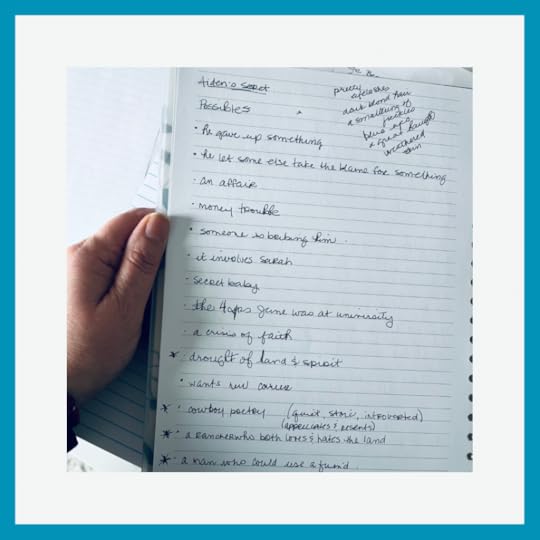 Aiden's secret
Possibles
pretty
eyelashes
dark blond hair
a smattering of
freckles
blue eyes
a great laugh
weathered
skin
• he gave up something
• he let some else take the blame for something
• an affair
• money trouble
• someone is bribing him.
• it involves Sarah
• secret baby
• the 4 yrs June was at university
• a crisis of faith
* • drought of land & spirit
• wants new career
* • cowboy poetry (quiet, stoic, introverted)
(appreciates & resents)
* • a rancher who both loves & hates the land
* • a man who could use a friend.